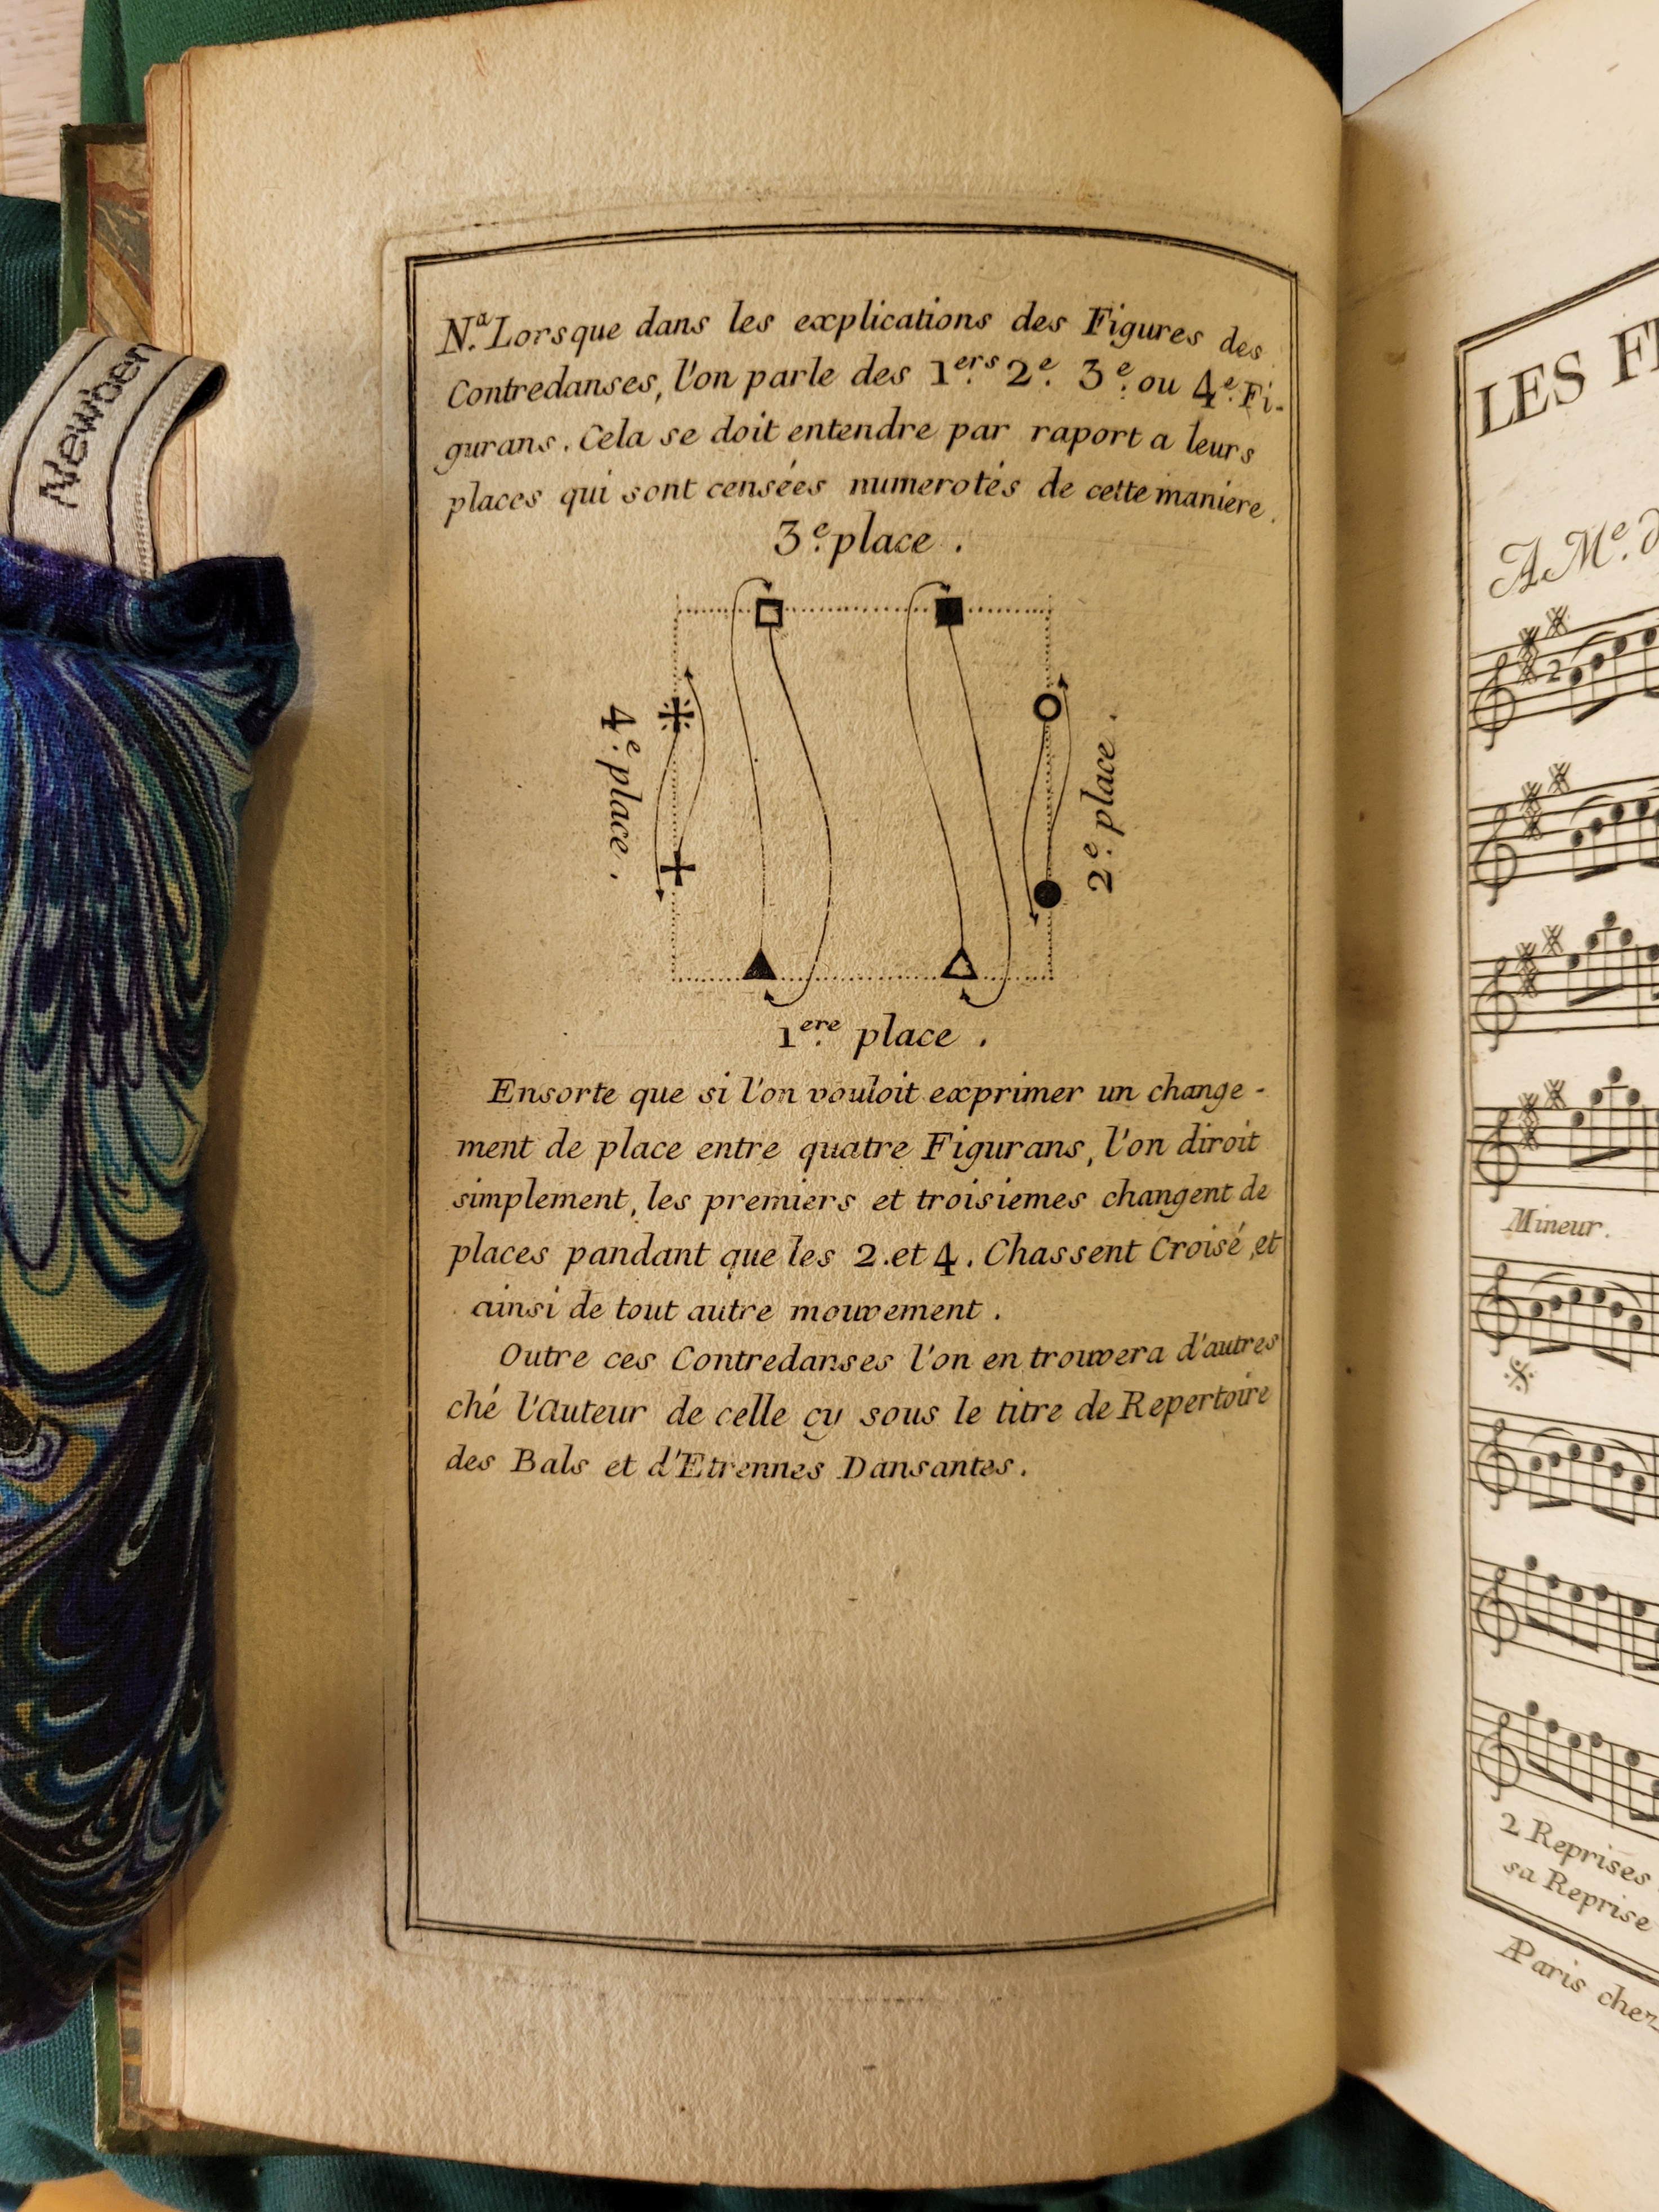 N.ª Lorsque dans les explications des Figures des
Contredanses, l'on parle des 1.ers 2.e 3.e ou 4.e Fi-
gurans. Cela se doit entendre par raport a leurs
places qui sont censées numerotés de cette maniere.
3.e place.
4.e place.
2.e place.
1.ere place.
Ensorte que si l'on vouloit exprimer un change-
ment de place entre quatre Figurans, l'on diroit
simplement, les premiers et troisiemes changent de
places pandant que les 2. et 4. Chassent Croisé, et
ainsi de tout autre mouvement.
Outre ces Contredanses l'on en trouvera d'autres
ché l'Auteur de celle cy sous le titre de Repertoire
des Bals et d'Etrennes Dansantes.
Newber
LES
A M.e
2
Mineur.
2 Reprises
sa Reprise
A Paris chez